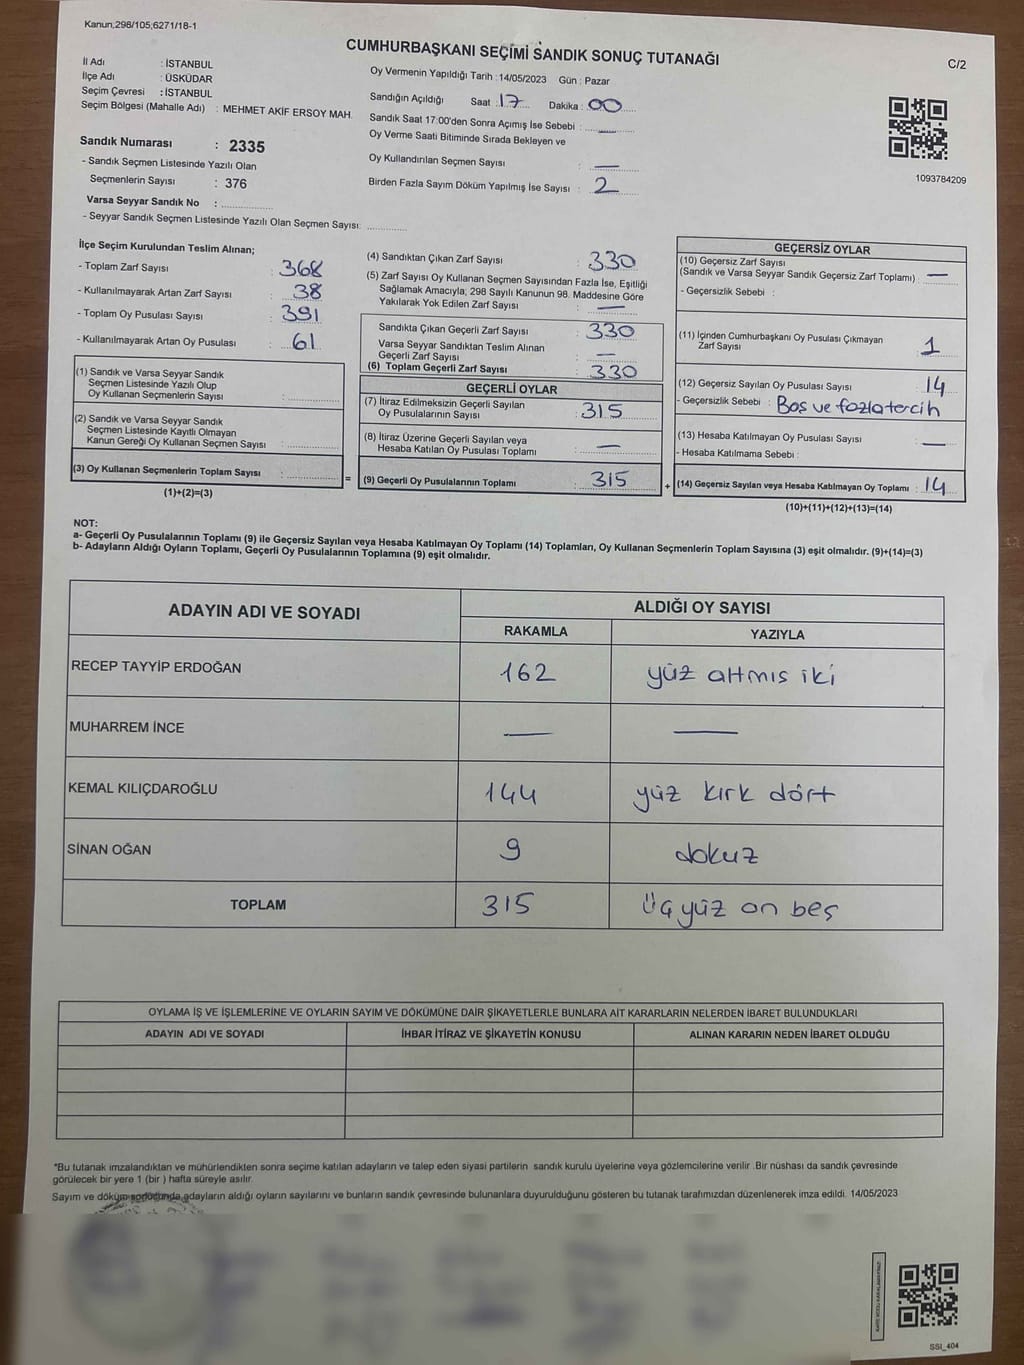 Kanun,298/105;6271/18-1
CUMHURBAŞKANI SEÇİMİ SANDIK SONUÇ TUTANAĞI
C/2
İl Adı : İSTANBUL
İlçe Adı : ÜSKÜDAR
Seçim Çevresi : İSTANBUL
Seçim Bölgesi (Mahalle Adı) : MEHMET AKİF ERSOY MAH.
Oy Vermenin Yapıldığı Tarih :14/05/2023 Gün : Pazar
Sandığın Açıldığı Saat : 17 Dakika : 00
Sandık Saat 17:00'den Sonra Açımış İse Sebebi :
Oy Verme Saati Bitiminde Sırada Bekleyen ve
Oy Kullandırılan Seçmen Sayısı : —
Birden Fazla Sayım Döküm Yapılmış İse Sayısı : 2
1093784209
Sandık Numarası : 2335
- Sandık Seçmen Listesinde Yazılı Olan
Seçmenlerin Sayısı : 376
Varsa Seyyar Sandık No :
- Seyyar Sandık Seçmen Listesinde Yazılı Olan Seçmen Sayısı:
İlçe Seçim Kurulundan Teslim Alınan;
- Toplam Zarf Sayısı : 368
- Kullanılmayarak Artan Zarf Sayısı : 38
- Toplam Oy Pusulası Sayısı : 391
- Kullanılmayarak Artan Oy Pusulası : 61
(1) Sandık ve Varsa Seyyar Sandık
Seçmen Listesinde Yazılı Olup
Oy Kullanan Seçmenlerin Sayısı :
(2) Sandık ve Varsa Seyyar Sandık
Seçmen Listesinde Kayıtlı Olmayan
Kanun Gereği Oy Kullanan Seçmen Sayısı :
(3) Oy Kullanan Seçmenlerin Toplam Sayısı : =
(1)+(2)=(3)
(4) Sandıktan Çıkan Zarf Sayısı : 330
(5) Zarf Sayısı Oy Kullanan Seçmen Sayısından Fazla İse, Eşitliği
Sağlamak Amacıyla, 298 Sayılı Kanunun 98. Maddesine Göre
Yakılarak Yok Edilen Zarf Sayısı : —
Sandıkta Çıkan Geçerli Zarf Sayısı : 330
Varsa Seyyar Sandıktan Teslim Alınan
Geçerli Zarf Sayısı : —
(6) Toplam Geçerli Zarf Sayısı : 330
GEÇERLİ OYLAR
(7) İtiraz Edilmeksizin Geçerli Sayılan
Oy Pusulalarının Sayısı : 315
(8) İtiraz Üzerine Geçerli Sayılan veya
Hesaba Katılan Oy Pusulası Toplamı : —
(9) Geçerli Oy Pusulalarının Toplamı : 315 +
GEÇERSİZ OYLAR
(10) Geçersiz Zarf Sayısı
(Sandık ve Varsa Seyyar Sandık Geçersiz Zarf Toplamı) : —
- Geçersizlik Sebebi :
(11) İçinden Cumhurbaşkanı Oy Pusulası Çıkmayan
Zarf Sayısı : 1
(12) Geçersiz Sayılan Oy Pusulası Sayısı : 14
- Geçersizlik Sebebi : Boş ve fazla tercih
(13) Hesaba Katılmayan Oy Pusulası Sayısı : —
- Hesaba Katılmama Sebebi :
(14) Geçersiz Sayılan veya Hesaba Katılmayan Oy Toplamı : 14
(10)+(11)+(12)+(13)=(14)
NOT:
a- Geçerli Oy Pusulalarının Toplamı (9) ile Geçersiz Sayılan veya Hesaba Katılmayan Oy Toplamı (14) Toplamları, Oy Kullanan Seçmenlerin Toplam Sayısına (3) eşit olmalıdır. (9)+(14)=(3)
b- Adayların Aldığı Oyların Toplamı, Geçerli Oy Pusulalarının Toplamına (9) eşit olmalıdır.
ADAYIN ADI VE SOYADI
ALDIĞI OY SAYISI
RAKAMLA YAZIYLA
RECEP TAYYİP ERDOĞAN 162 yüz altmıs iki
MUHARREM İNCE — —
KEMAL KILIÇDAROĞLU 144 yüz kırk dört
SİNAN OĞAN 9 dokuz
TOPLAM 315 Üç yüz on beş
OYLAMA İŞ VE İŞLEMLERİNE VE OYLARIN SAYIM VE DÖKÜMÜNE DAİR ŞİKAYETLERLE BUNLARA AİT KARARLARIN NELERDEN İBARET BULUNDUKLARI
ADAYIN ADI VE SOYADI İHBAR İTİRAZ VE ŞİKAYETİN KONUSU ALINAN KARARIN NEDEN İBARET OLDUĞU
*Bu tutanak imzalandıktan ve mühürlendikten sonra seçime katılan adayların ve talep eden siyasi partilerin sandık kurulu üyelerine veya gözlemcilerine verilir .Bir nüshası da sandık çevresinde
görülecek bir yere 1 (bir ) hafta süreyle asılır.
Sayım ve döküm sonucunda adayların aldığı oyların sayılarını ve bunların sandık çevresinde bulunanlara duyurulduğunu gösteren bu tutanak tarafımızdan düzenlenerek imza edildi. 14/05/2023
SSI_404